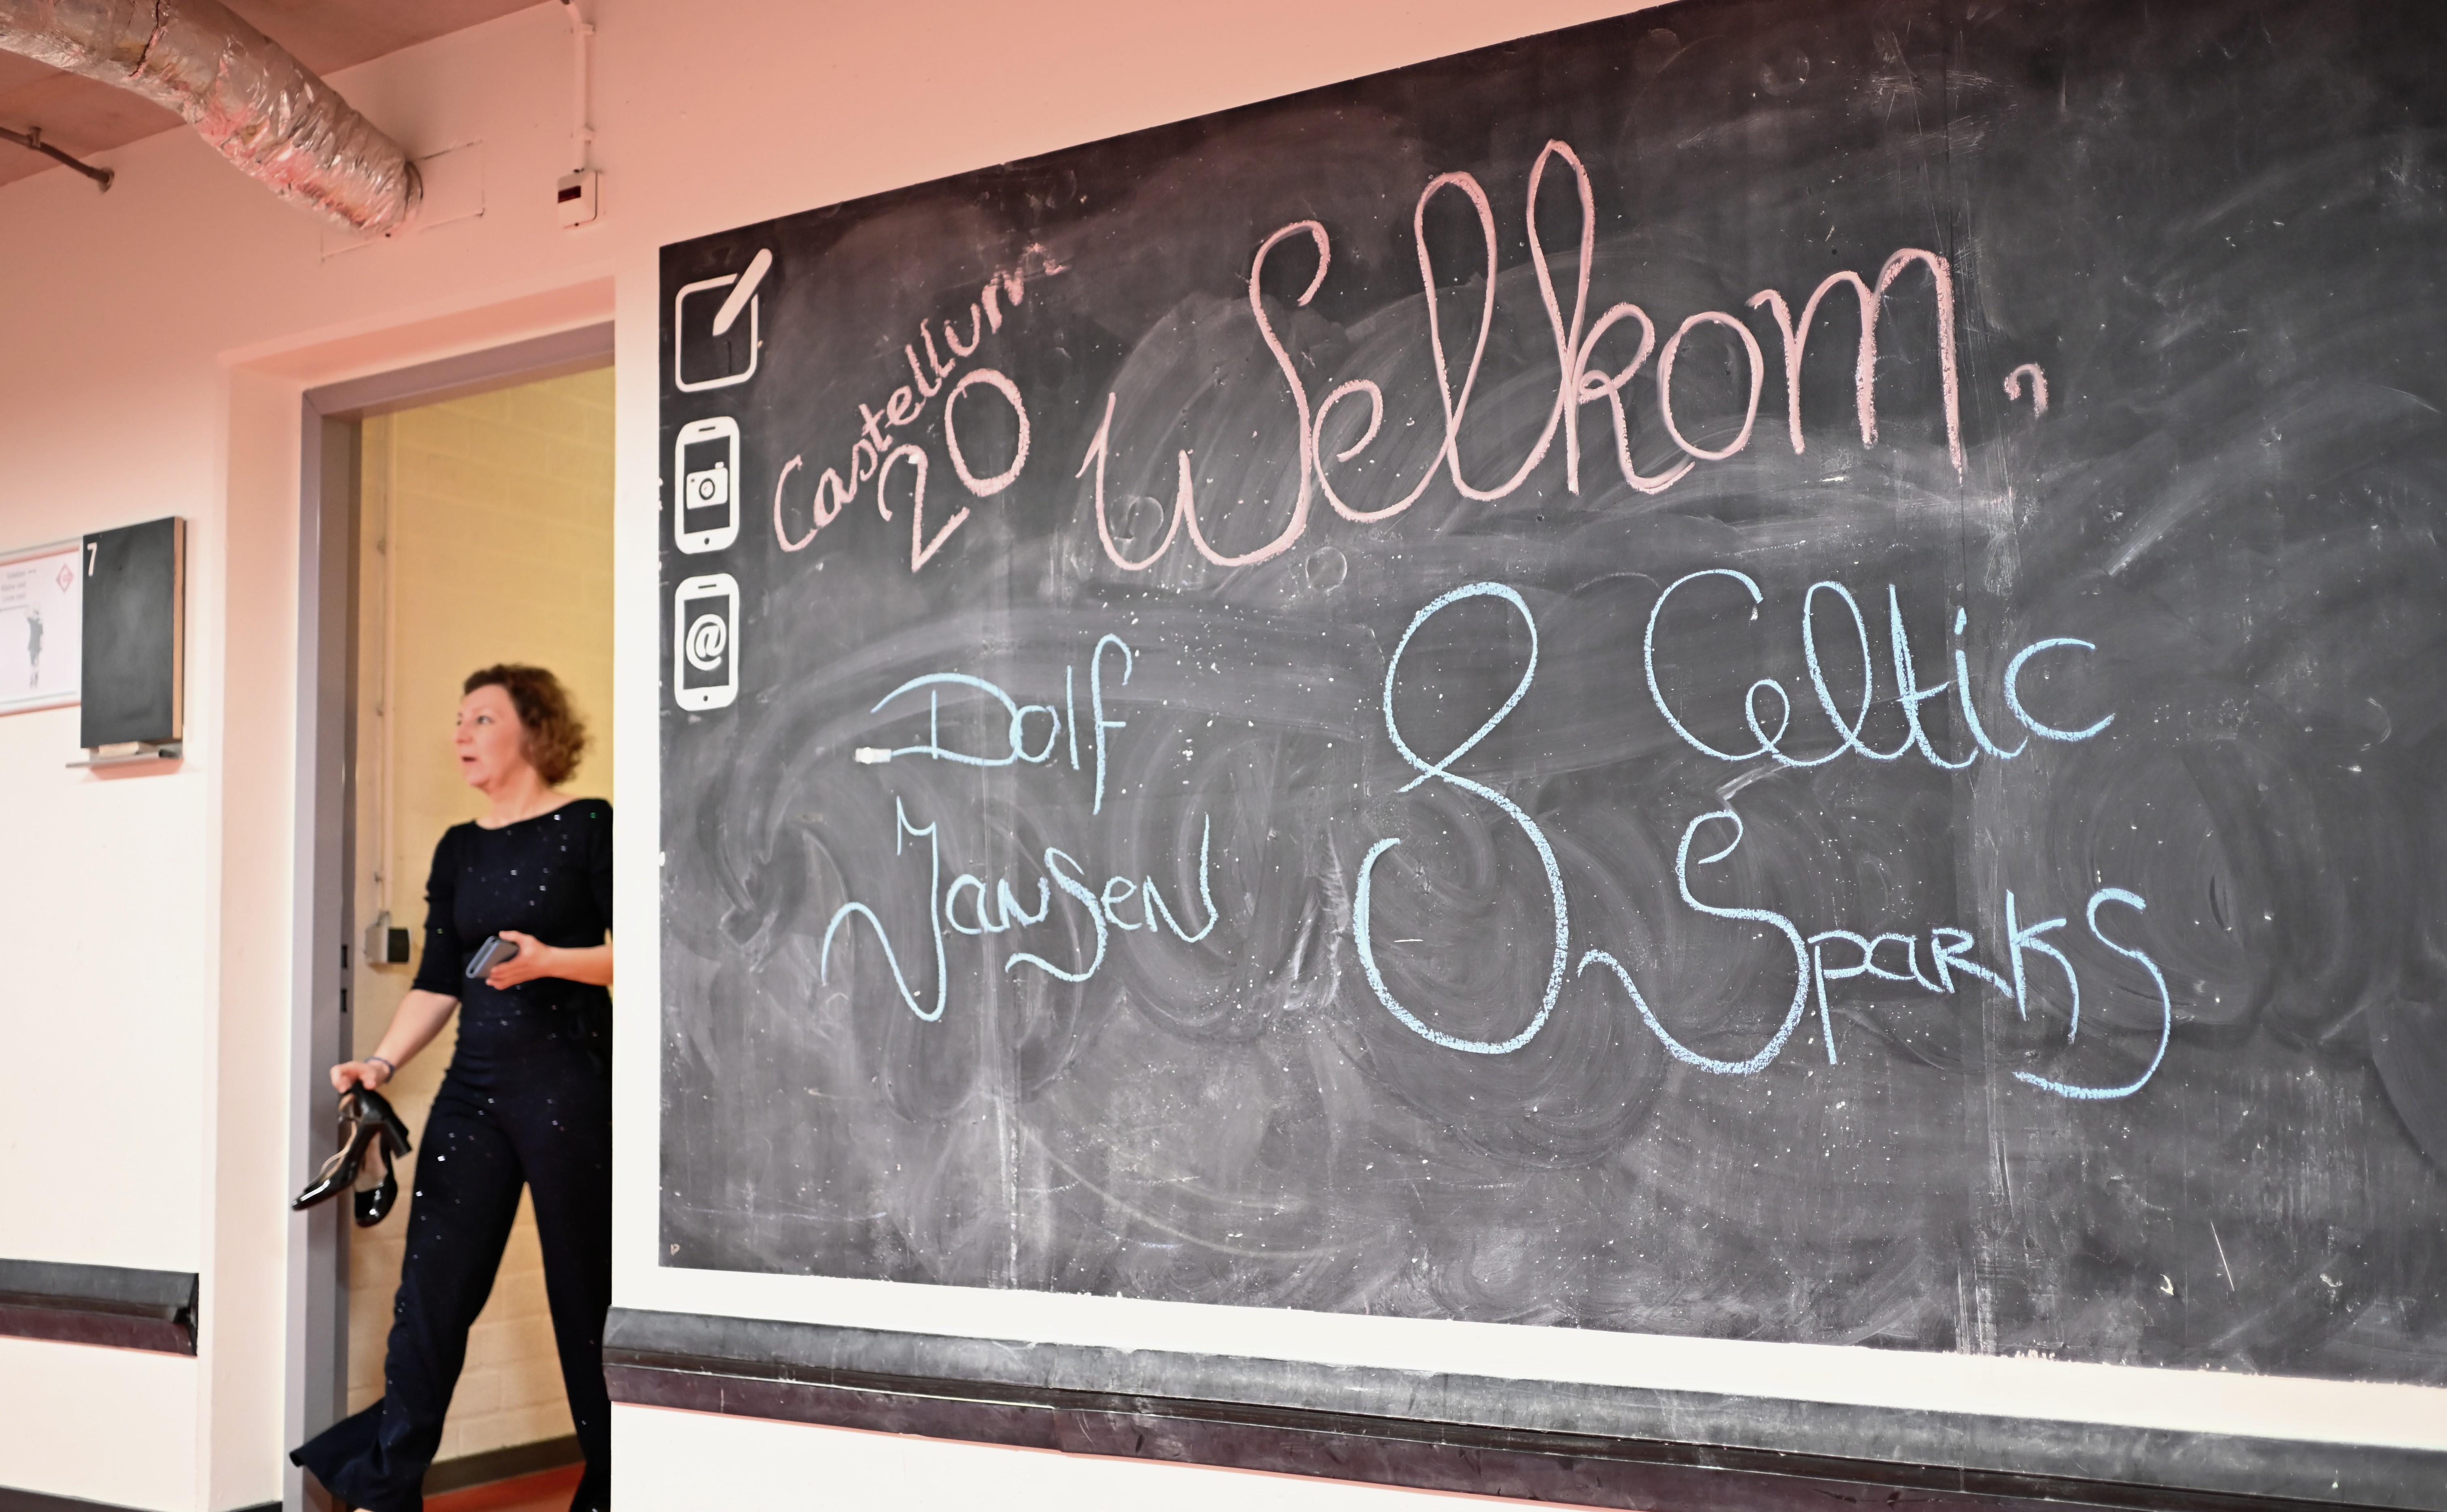 Castellum
20
Welkom,
Dolf
Jansen
&
Celtic
Sparks
7
@